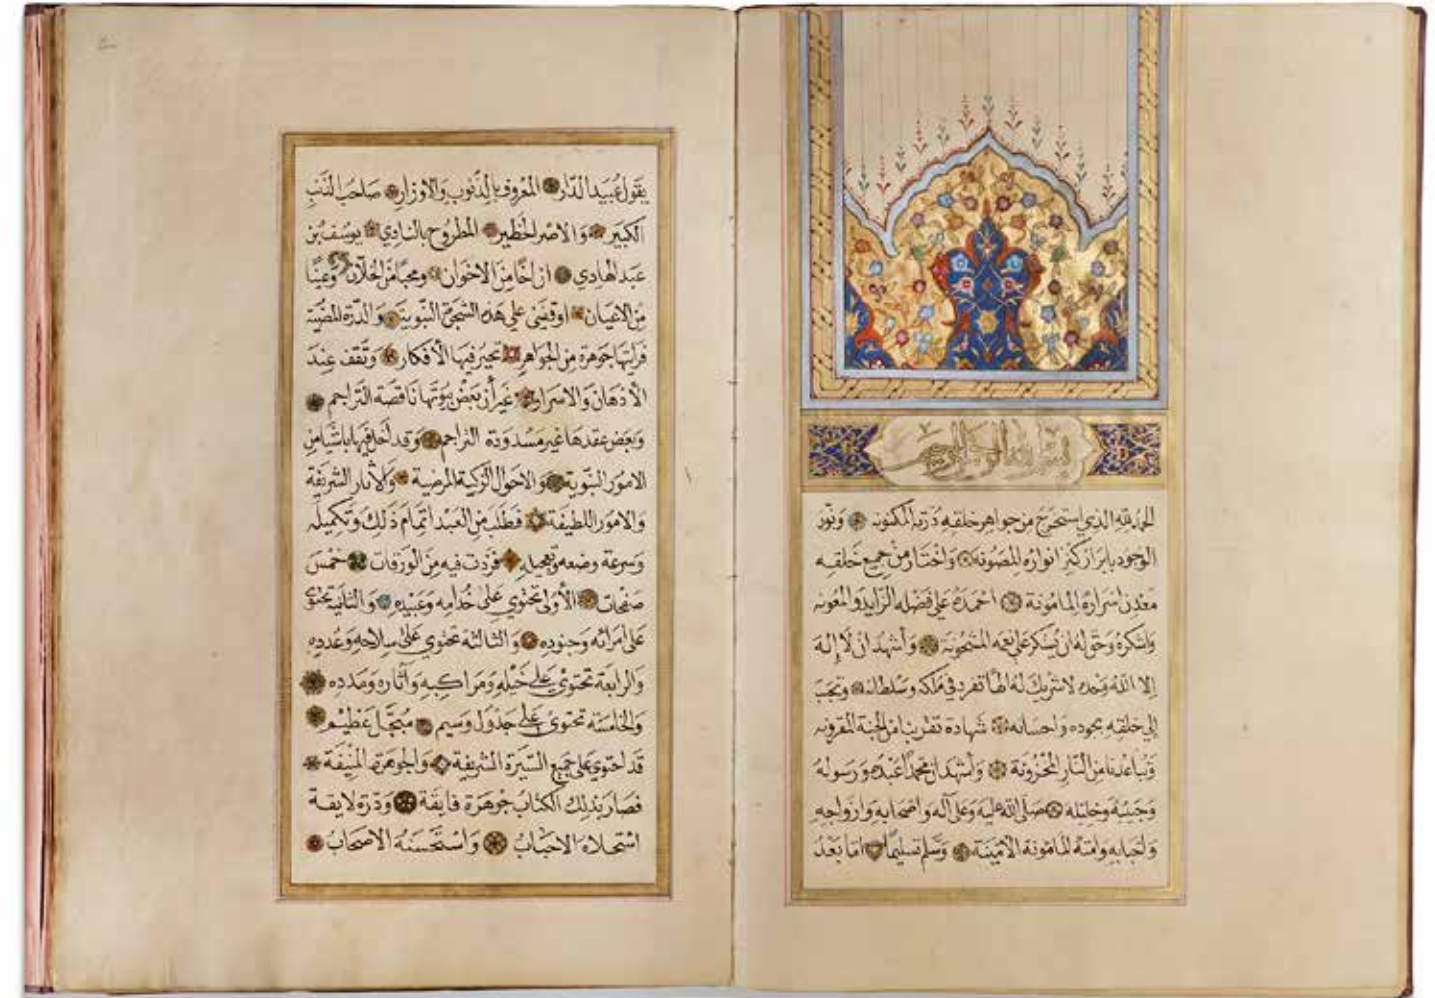 بسم الله الرحمن الرحيم
الحمد لله الذي استخرج من جواهر خلقه درته المكنونه ونور
الوجود بابراز كنز انواره المصونه واختار من جميع خلقه
معدن اسراره المامونة احمده على فضله الزايد والمعونه
واشكره وحق له ان يشكر على نعمه المشحونة وأشهد ان لا إله
إلا الله وحده لا شريك له الها تفرد في ملكه وسلطانه وتحبب
إلى خلقه بجوده واحسانه شهادة تقربنا من الجنة المقرونه
وتباعدنا من النار المخزونة وأشهد ان محمداً عبده ورسوله
وحبيبه وخليله صلى الله عليه وعلى آله واصحابه وازواجه
واحبابه وامته المامونة الأمينة وسلم تسليمًا اما بعد
يقول عُبيد الدار المعروف بالذنوب والاوزار صاحب الذنب
الكبير والاصر الخطير المطروح بالنادي يوسف بن
عبد الهادي ان اخًا من الاخوان ومحبًا من الخلان وعينًا
من الاعيان اوقفني على هذه الشجرة النبوية والدرة المضية
فرايتها جوهرة من الجواهر تحير فيها الأفكار وتقف عند
الأذهان والاسرار غير أن بعض بيوتها ناقصة التراجم
وبعض عقدها غير مسدودة التراجم وقد أخل فيها باشيا من
الامور النبوية والاحوال الزكية المرضية والآثار الشريفة
والامور اللطيفة فطلب من العبد اتمام ذلك وتكميله
وسرعة وضعه وتعجيله فزدت فيه من الورقات خمس
صفحات الأولى تحتوي على خدامه وعبيده والثانية تحتوي
على امرائه وجنوده والثالثة تحتوي على سلاحه وعدده
والرابعة تحتوي على خيله ومراكبه وآثاره ومدده
والخامسة تحتوي على جدول وسيم مبجل عظيم
قد احتوى على جميع السيرة الشريفة والجوهرة المنيفة
فصار بذلك الكتاب جوهرة فايقة ودرة لايقة
استحلاه الاحباب واستحسنه الاصحاب